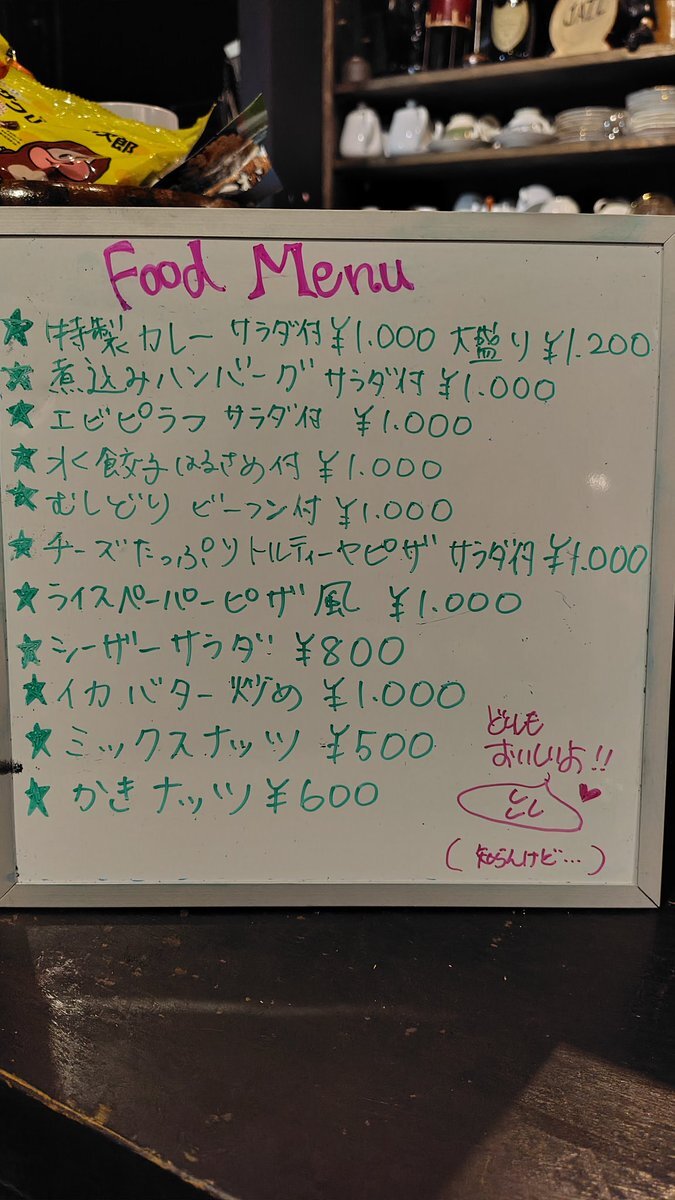 JAZZ
次郎
Food Menu
★特製カレー サラダ付 ¥1.000 大盛り ¥1.200
★煮込みハンバーグ サラダ付 ¥1.000
★エビピラフ サラダ付 ¥1.000
★水餃子 はるさめ付 ¥1.000
★むしどり ビーフン付 ¥1.000
★チーズたっぷりトルティーヤピザ サラダ付 ¥1.000
★ライスペーパーピザ風 ¥1.000
★シーザーサラダ ¥800
★イカバター炒め ¥1.000
★ミックスナッツ ¥500
★かきナッツ ¥600
どれも
おいしいよ!!
(知らんけど…)